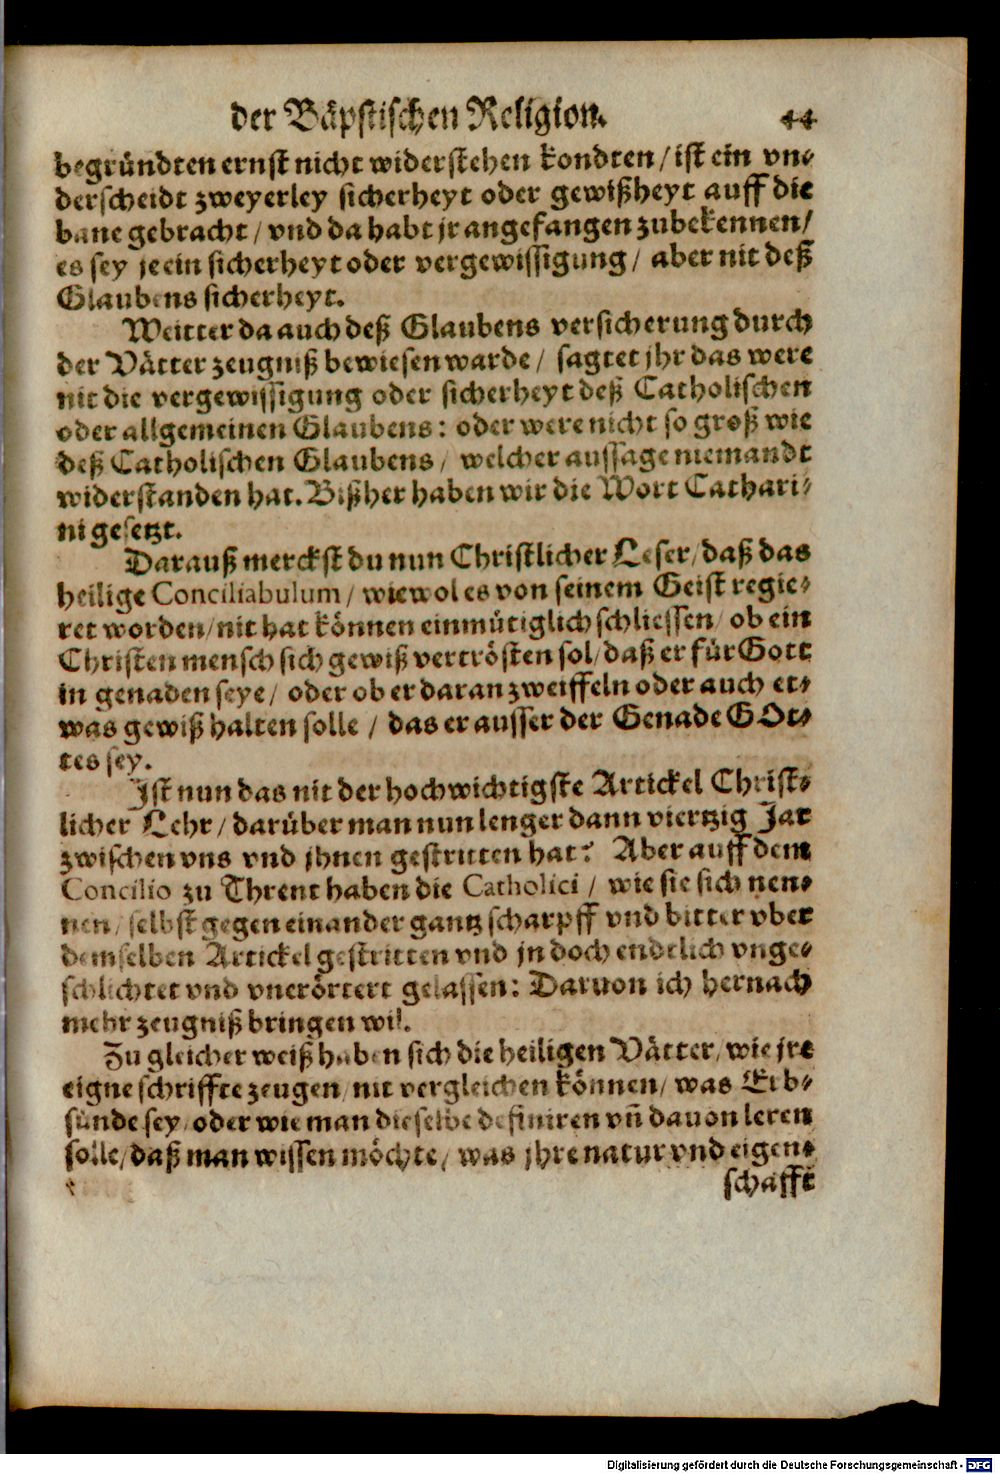 der Bäpstischen Religion. 44
begründten ernst nicht widerstehen kondten / ist ein vn⸗
derscheidt zweyerley sicherheyt oder gewißheyt auff die
bane gebracht / vnd da habt jr angefangen zubekennen /
es sey je ein sicherheyt oder vergewissigung / aber nit deß
Glaubens sicherheyt.
Weitter da auch deß Glaubens versicherung durch
der Vätter zeugniß bewiesen warde / sagtet jhr das were
nit die vergewissigung oder sicherheyt deß Catholischen
oder allgemeinen Glaubens: oder were nicht so groß wie
deß Catholischen Glaubens / welcher aussage niemandt
widerstanden hat. Bißher haben wir die Wort Cathari⸗
ni gesetzt.
Darauß merckst du nun Christlicher Leser / daß das
heilige Conciliabulum / wiewol es von seinem Geist regie⸗
ret worden / nit hat können einmütiglich schliessen / ob ein
Christen mensch sich gewiß vertrösten sol / daß er für Gott
in genaden seye / oder ob er daran zweiffeln oder auch et⸗
was gewiß halten solle / das er ausser der Genade GOt⸗
tes sey.
Ist nun das nit der hochwichtigste Artickel Christ⸗
licher Lehr / darüber man nun lenger dann viertzig Jar
zwischen vns vnd jhnen gestritten hat? Aber auff dem
Concilio zu Thrent haben die Catholici / wie sie sich nen⸗
nen / selbst gegen einander gantz scharpff vnd bitter vber
demselben Artickel gestritten vnd jn doch endelich vnge⸗
schlichtet vnd vnerörtert gelassen: Daruon ich hernach
mehr zeugniß bringen wil.
Zu gleicher weiß haben sich die heiligen Vätter / wie jre
eigne schriffte zeugen / nit vergleichen können / was Erb⸗
sünde sey / oder wie man dieselbe definiren vñ dauon leren
solle / daß man wissen möchte / was jhre natur vnd eigen⸗
schafft
Digitalisierung gefördert durch die Deutsche Forschungsgemeinschaft - DFG